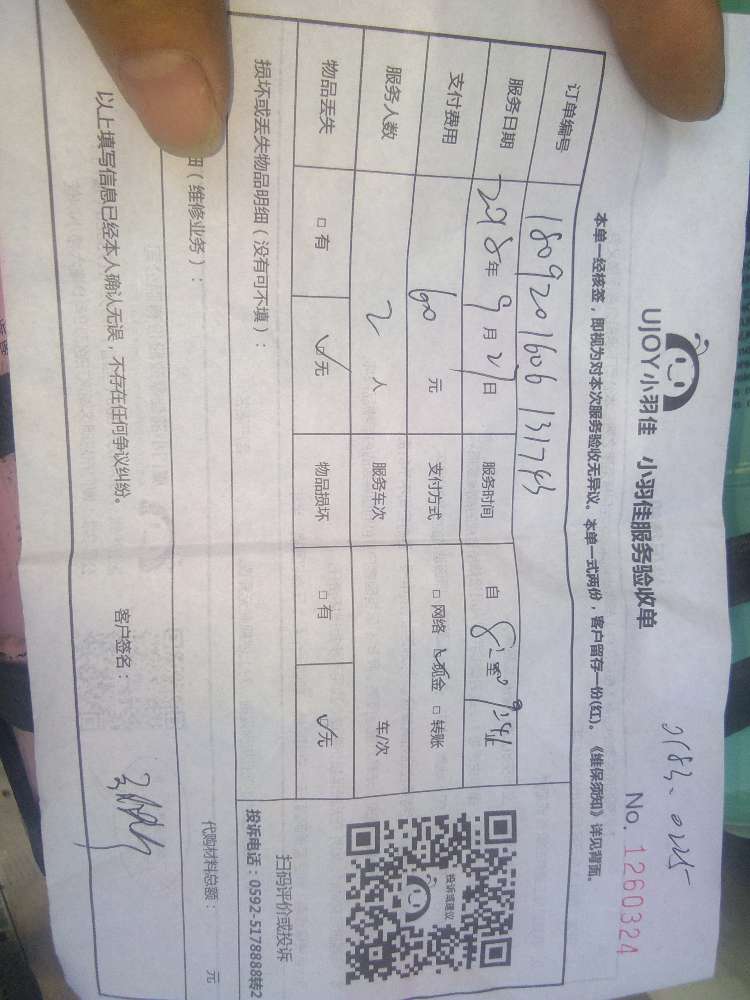 UJOY小羽佳 小羽佳服务验收单
No. 1260324
本单一经核签，即视为对本次服务验收无异议。本单一式两份，客户留存一份(红)。《维保须知》详见背面。
订单编号 180920160613174
服务日期 2018年9月21日 服务时间 自 至
支付费用 60 元 支付方式 □网络 ☑现金 □转账
服务人数 2 人 服务车次 车/次
物品丢失 □有 ☑无 物品损坏 □有 ☑无
损坏或丢失物品明细（没有可不填）：
投诉或建议
扫码评价或投诉
投诉电话：0592-5178888转2
细（维修业务）：
代购材料总额： 元
以上填写信息已经本人确认无误，不存在任何争议纠纷。 客户签名：